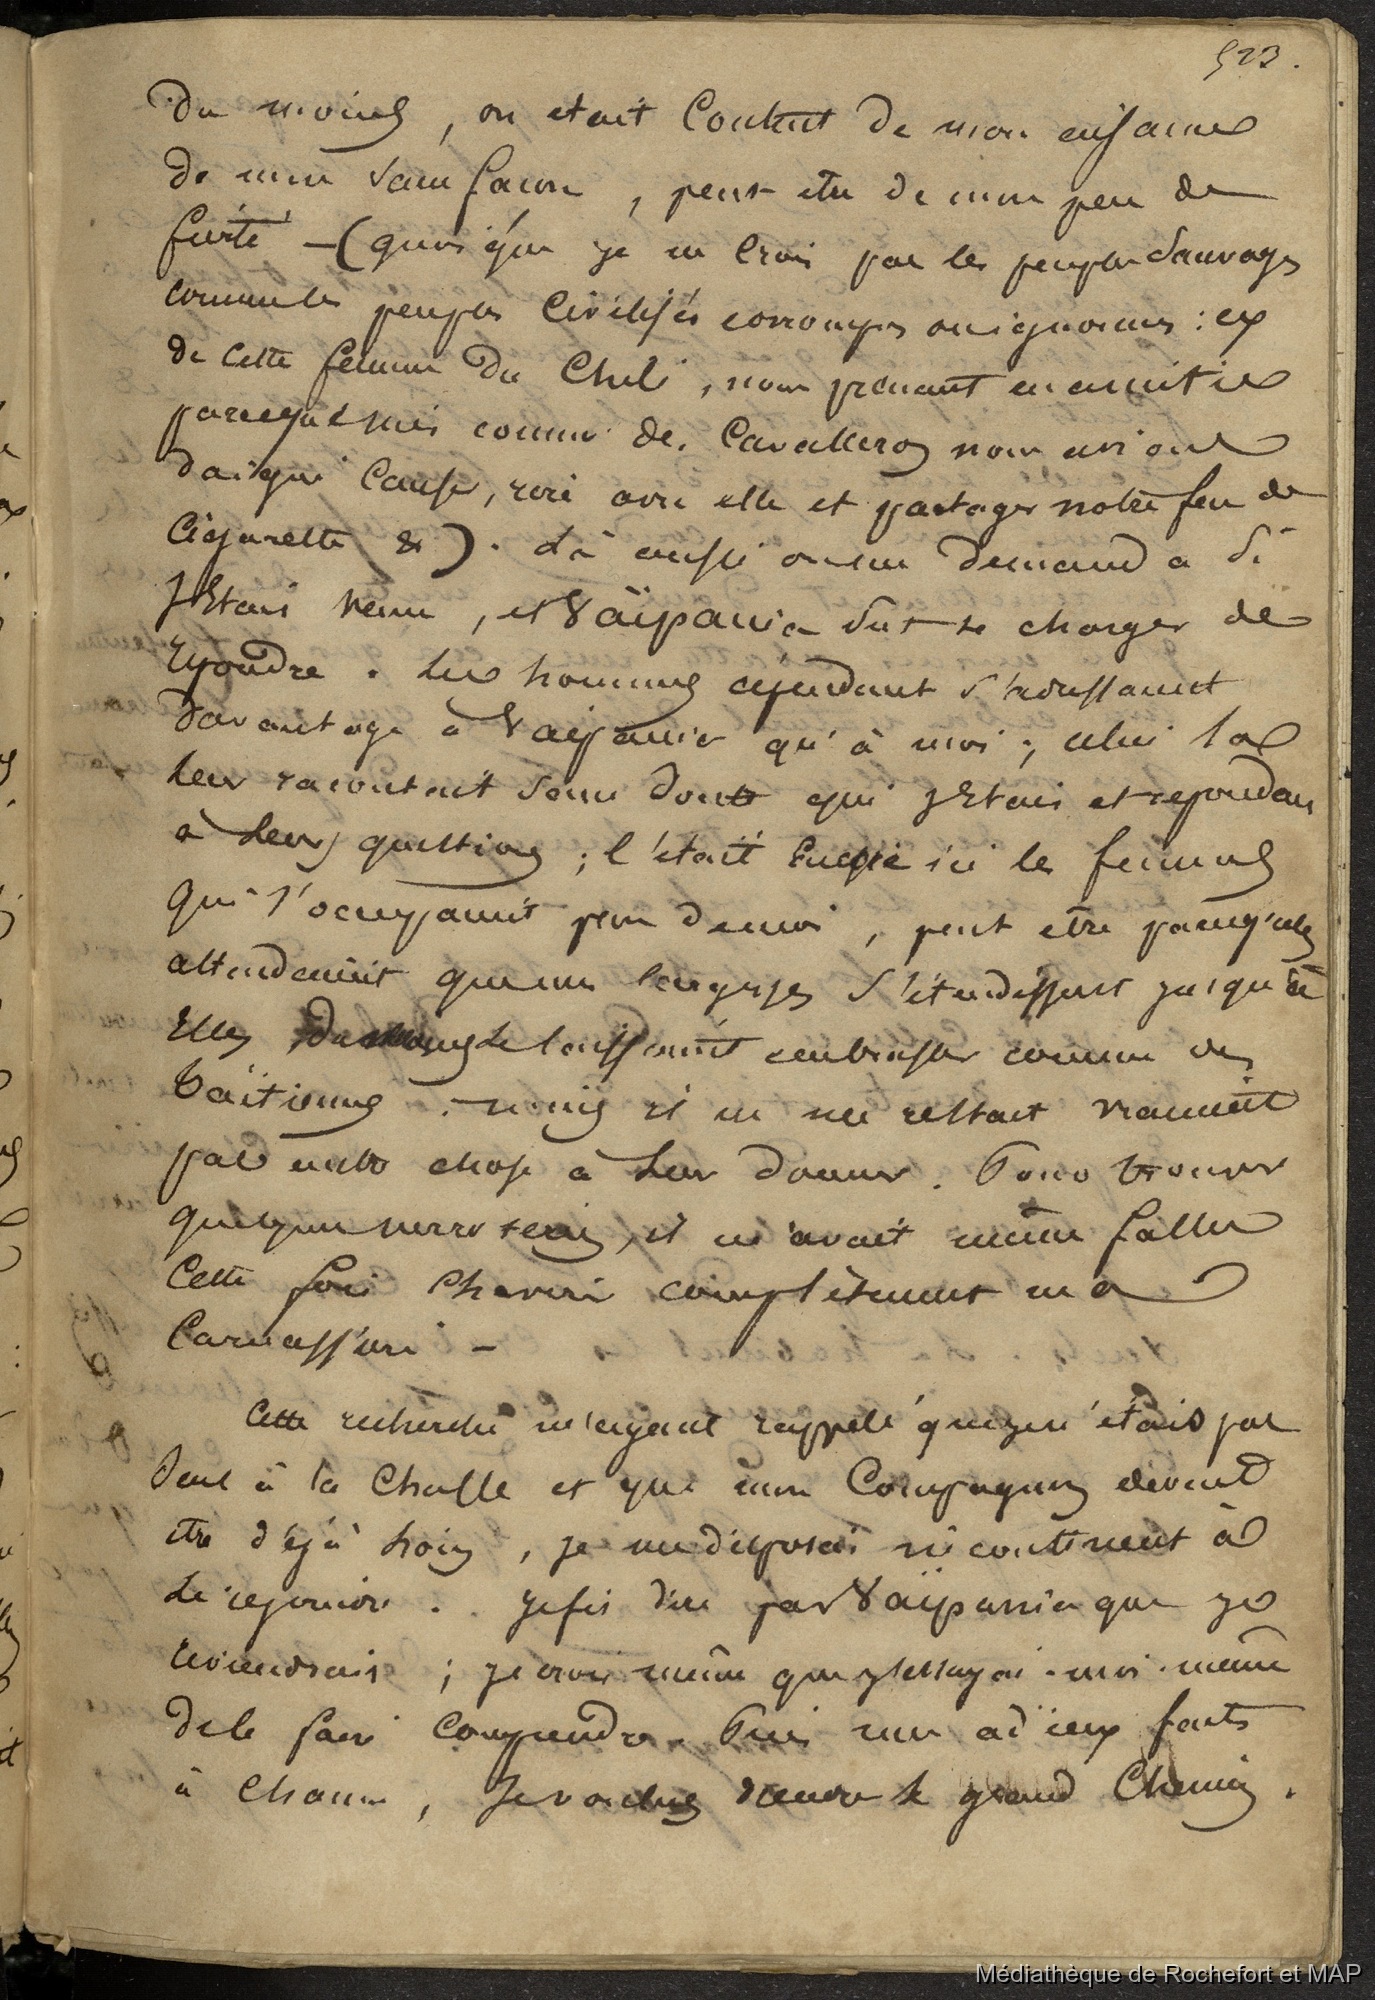 523.
Du moins, on etait Content de mon aisance
de mon sans façon, peut etre de mon peu de
fierté — (quoique je ne Crois pas les peuples Sauvages
comme les peuples Civilisés corrompus ou ignorans : ex
de Cette femme du Chili, nous prenant en amitié
parceque nous comme de. Cavalleros nous avions
daigné Causer, rire avec elle et partager notre feu de
Cigarette &). Là aussi on me demanda si
J'Etais venu, et Vaïpania dut se charger de
repondre. Les hommes cependant s'adressaient
davantage à Vaipania qu'à moi ; celui la
leur racontait sans doute qui J'Etais et repondait
à Leurs questions ; c'etait ici les femmes
qui s'occupaient de moi, peut etre parcequ'elles
attendaient que mes largesses s'étendissent jusqu'à
Elles se laissaient embrasser comme des
Taïtiennes. mais il ne me restait vraiment
pas autre chose à leur donner. Pour trouver
quelques verroteries, il m'avait même fallu
Cette fois Chavirer complètement ma
Carnassière —
Cette recherche m'ayant rappelé que je n'étais pas
Seul à la Chasse et que mon Compagnon devait
etre déjà loin, je me disposai incontinent à
Le rejoindre. Je fis dire par Vaïpania que je
reviendrais ; je crois même que j'essayai moi-même
de le faire Comprendre. Puis mes adieux faits
à Chacun, Je voulus prendre le grand Chemin.
Médiathèque de Rochefort et MAP